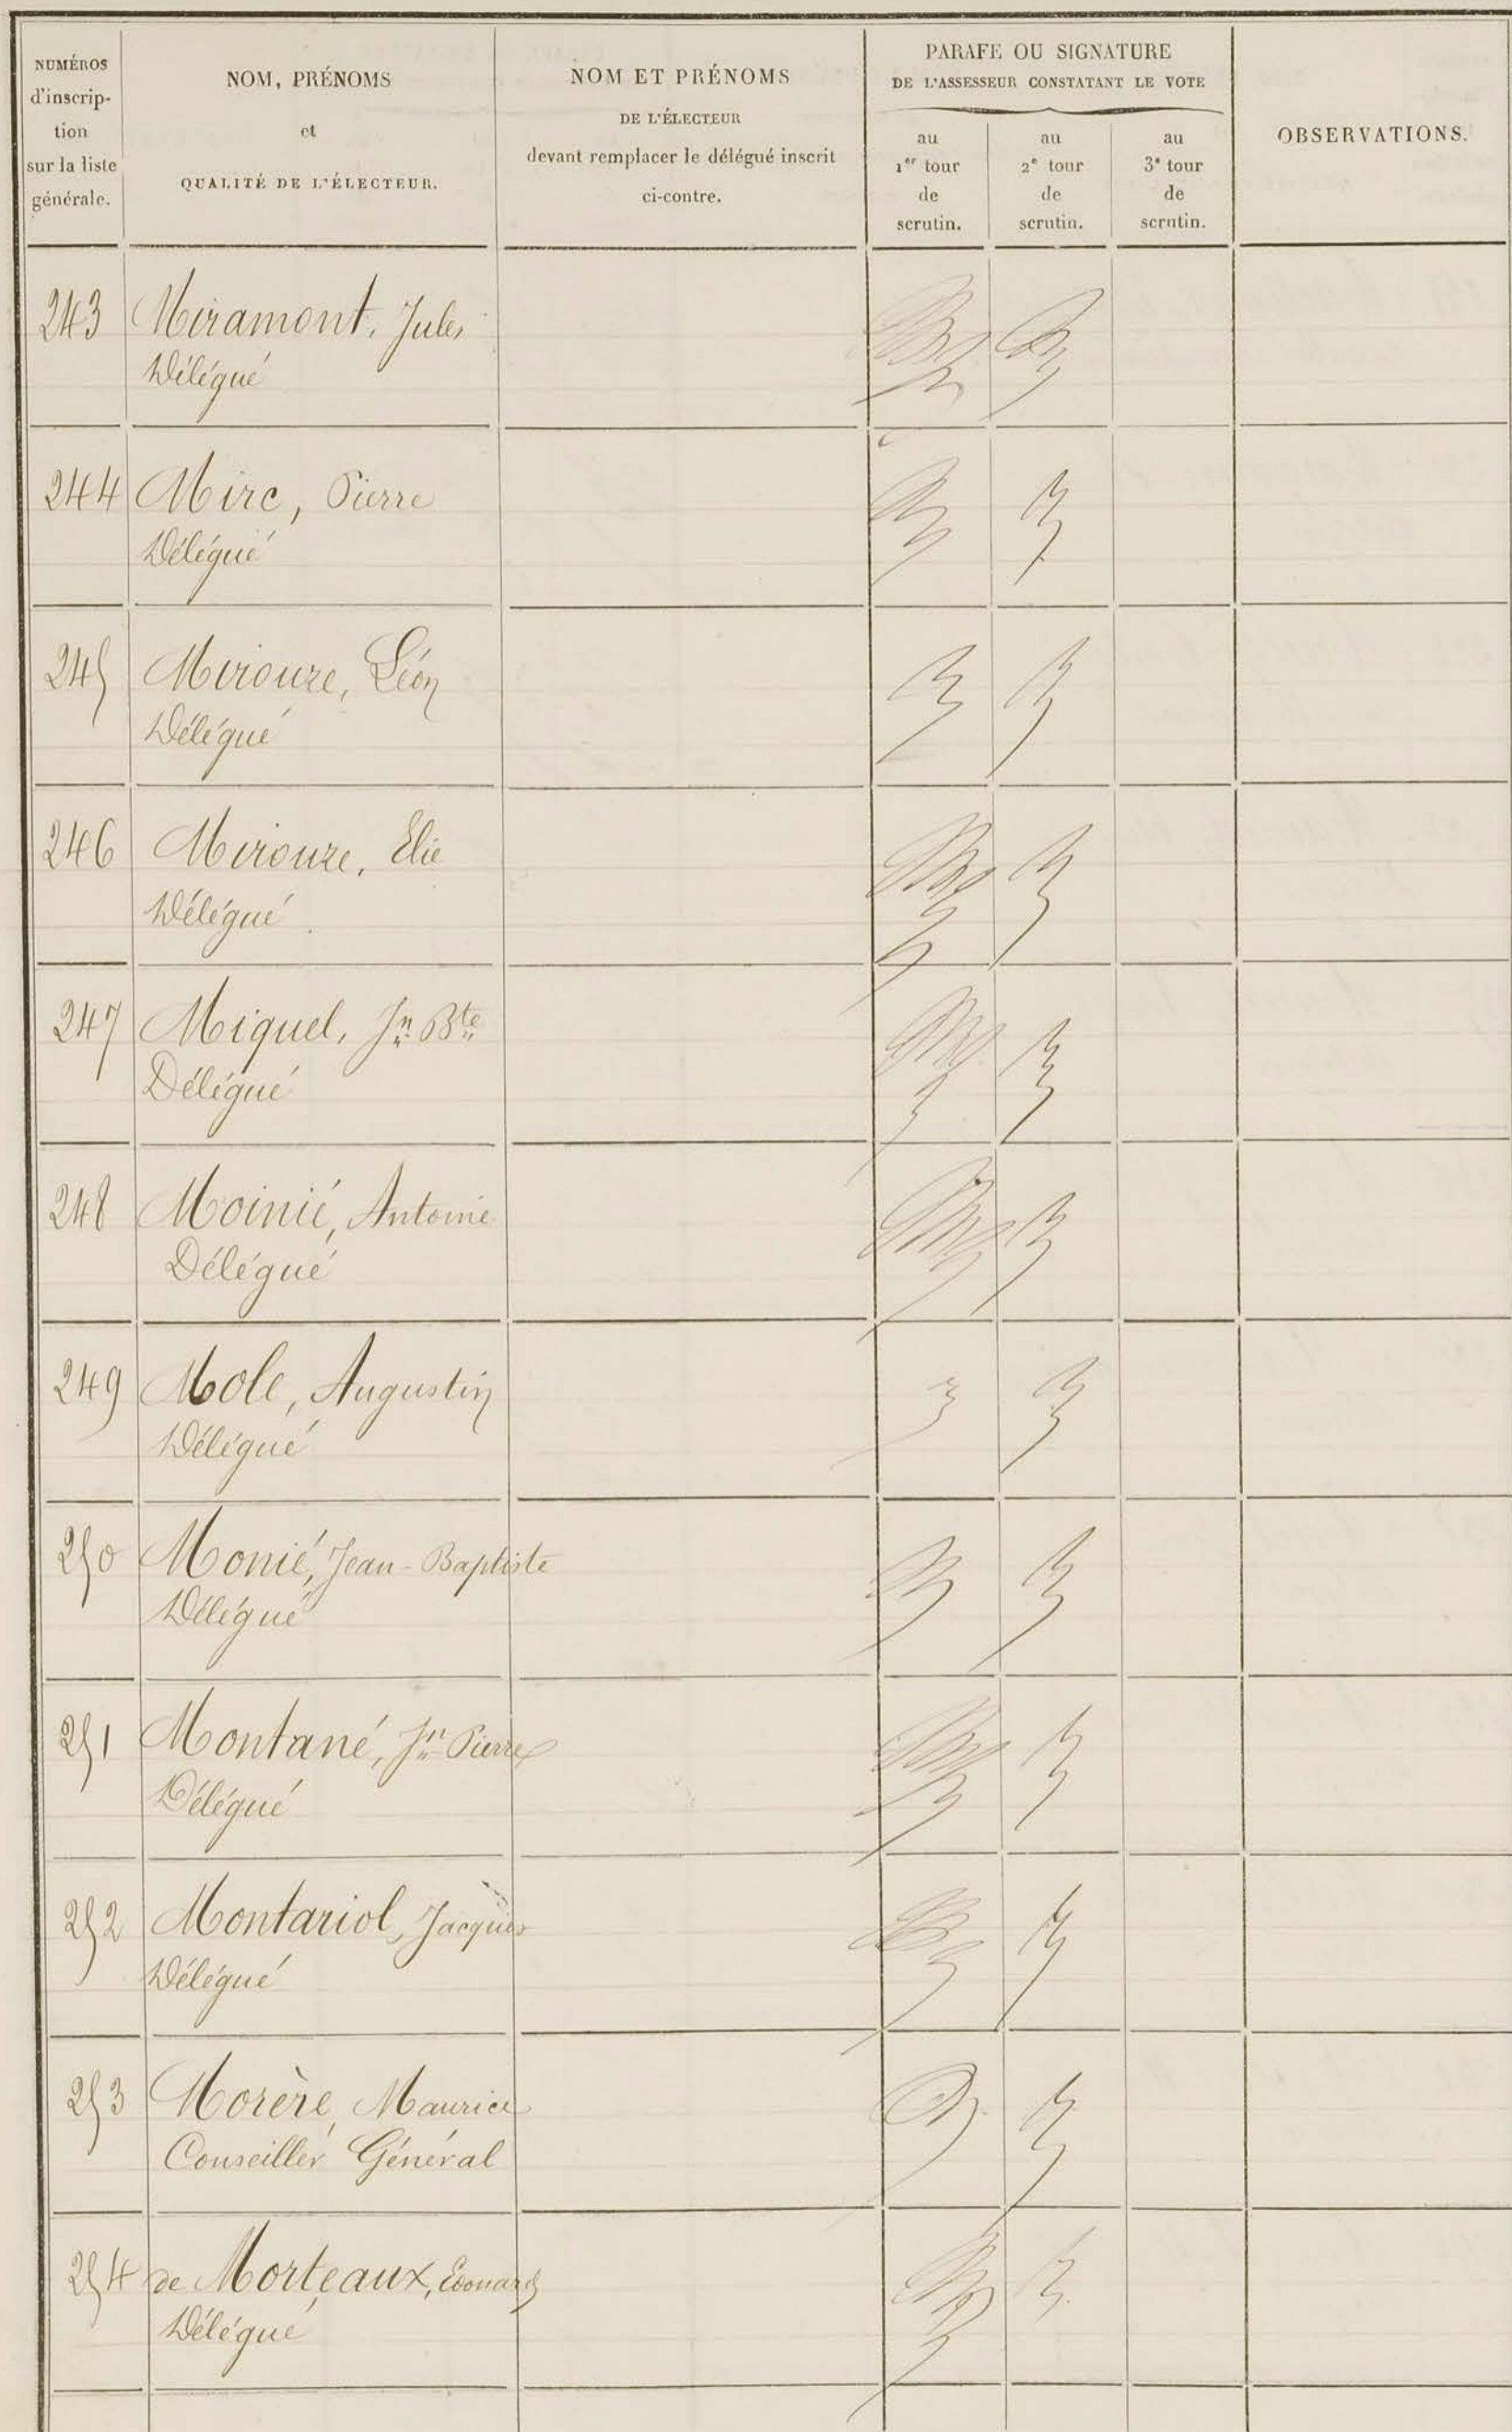 NUMÉROS
d'inscrip-
tion
sur la liste
générale.
NOM, PRÉNOMS
et
QUALITÉ DE L'ÉLECTEUR.
NOM ET PRÉNOMS
DE L'ÉLECTEUR
devant remplacer le délégué inscrit
ci-contre.
PARAFE OU SIGNATURE
DE L'ASSESSEUR CONSTATANT LE VOTE
au
1er tour
de
scrutin.
au
2e tour
de
scrutin.
au
3e tour
de
scrutin.
OBSERVATIONS.
243 Miramont, Jules
Délégué
244 Mirc, Pierre
Délégué
245 Mirouze, Léon
Délégué
246 Mirouze, Elie
Délégué
247 Miquel, Jn Bte
Délégué
248 Moinié, Antoine
Délégué
249 Mole, Augustin
Délégué
250 Monié, Jean-Baptiste
Délégué
251 Montané, Jn Pierre
Délégué
252 Montariol, Jacques
Délégué
253 Morère, Maurice
Conseiller Général
254 de Morteaux, Edouard
Délégué